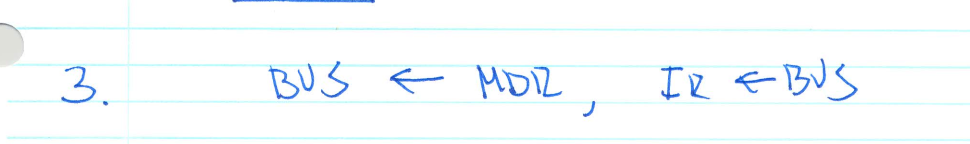 3. BUS ← MDR, IR ← BUS